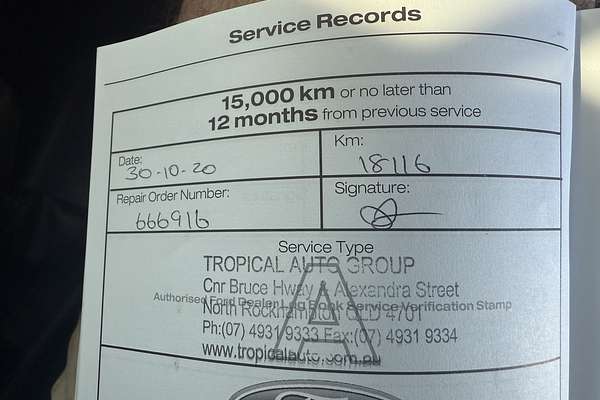 Service Records
15,000 km or no later than
12 months from previous service
Date:
30-10-20
Km:
18116
Repair Order Number:
666916
Signature:
Service Type
TROPICAL AUTO GROUP
Cnr Bruce Hwy & Alexandra Street
Authorised Ford Dealer Log Book Service Verification Stamp
North Rockhampton QLD 4701
Ph:(07) 4931 9333 Fax:(07) 4931 9334
www.tropicalauto.com.au
A